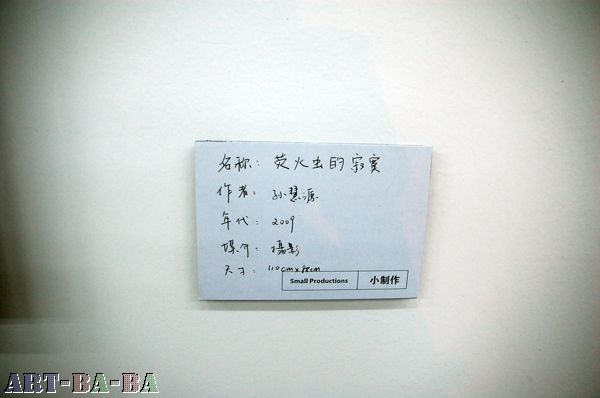 名称: 荧火虫的寂寞
作者: 孙慧源
年代: 2009
媒介: 摄影
尺寸: 110cm x
Small Productions 小制作
ART-BA-BA